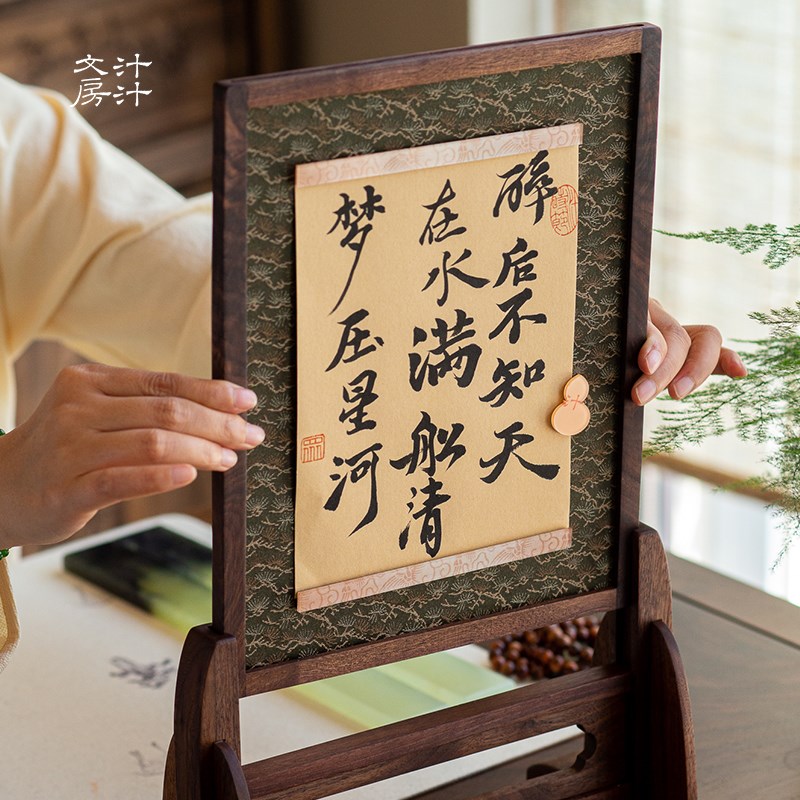 醉后不知天
在水满船清
梦压星河
文房
汁汁